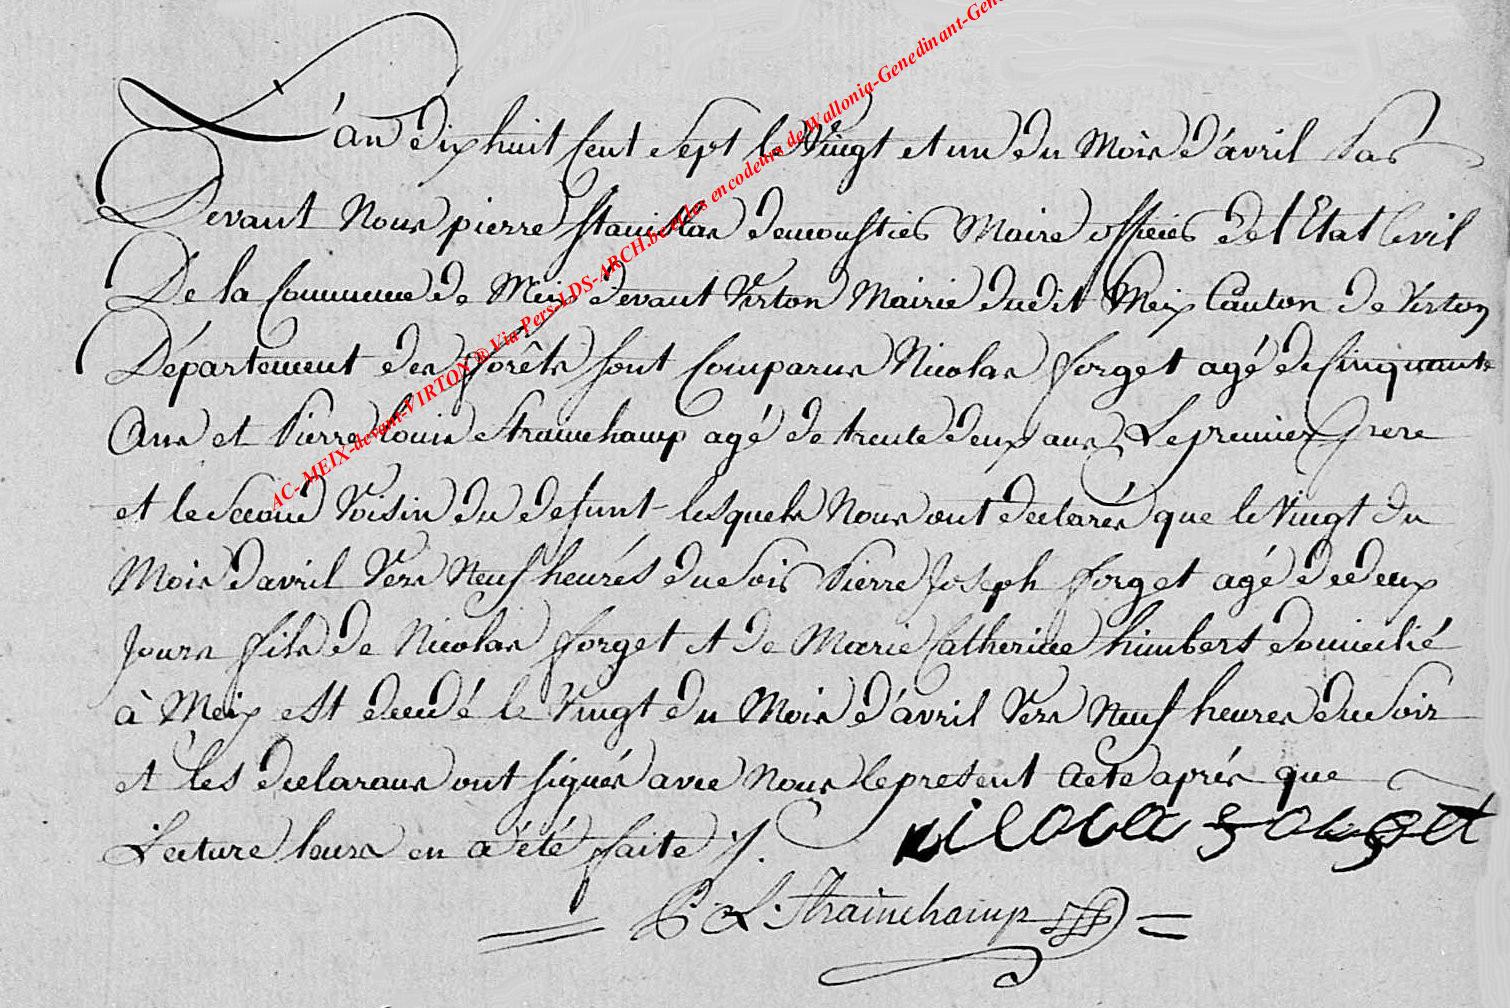 L'an dix huit Cent Sept le Vingt et un du Mois d'avril Par
Devant Nous pierre Stanislas demoustiés Maire officiés de l'Etat Civil
De la Commune de Meix devant Virton Mairie dudit Meix Canton de Virton
Département des forêts sont Comparus Nicolas forget agé de Cinquante
Ans et Pierre Louis Strainchamp agé de trente deux ans Le premier frere
et le Second Voisin du defunt lesquels Nous ont declarés que le Vingt du
Mois d'avril Vers Neuf heurés du Soir Pierre Joseph forget agé de deux
Jours fils de Nicolas forget et de Marie Catherine himbert domicilié
à Meix est decedé le Vingt du Mois d'avril Vers Neuf heures du Soir
et les declarans ont signés avec Nous le present Acte aprés que
Lecture leurs en a été faite
nicola forget
P. L. Strainchamp
AC- MEIX-devant-VIRTON ® Via Pers-LDS-ARCH.be et les encodeurs de Wallonia-Genedinant-Gen